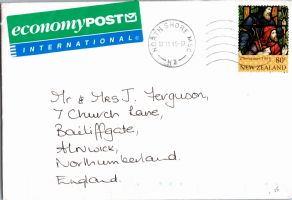 economyPOST
INTERNATIONAL
NORTH SHORE M.S.C
NZ
80c
NEW ZEALAND
Mr & Mrs J. Ferguson,
7 Church Lane,
Bailiffgate,
Alnwick,
Northumberland.
England.